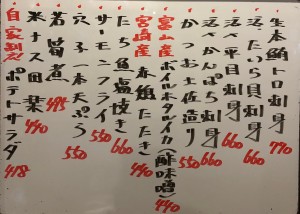 生本鮪トロ刺身 770
活〆たい刺身
活〆平目刺身 660
活〆かんぱち刺身 660
かつお土佐造り 550
富山産ボイルホタルイカ(酢味噌) 440
宮崎産赤鶏たたき 440
たち魚塩焼き 660
サーモンフライ 550
穴子一本天ぷら 550
若筍煮 495
米ナス田楽 440
自家製ポテトサラダ 418